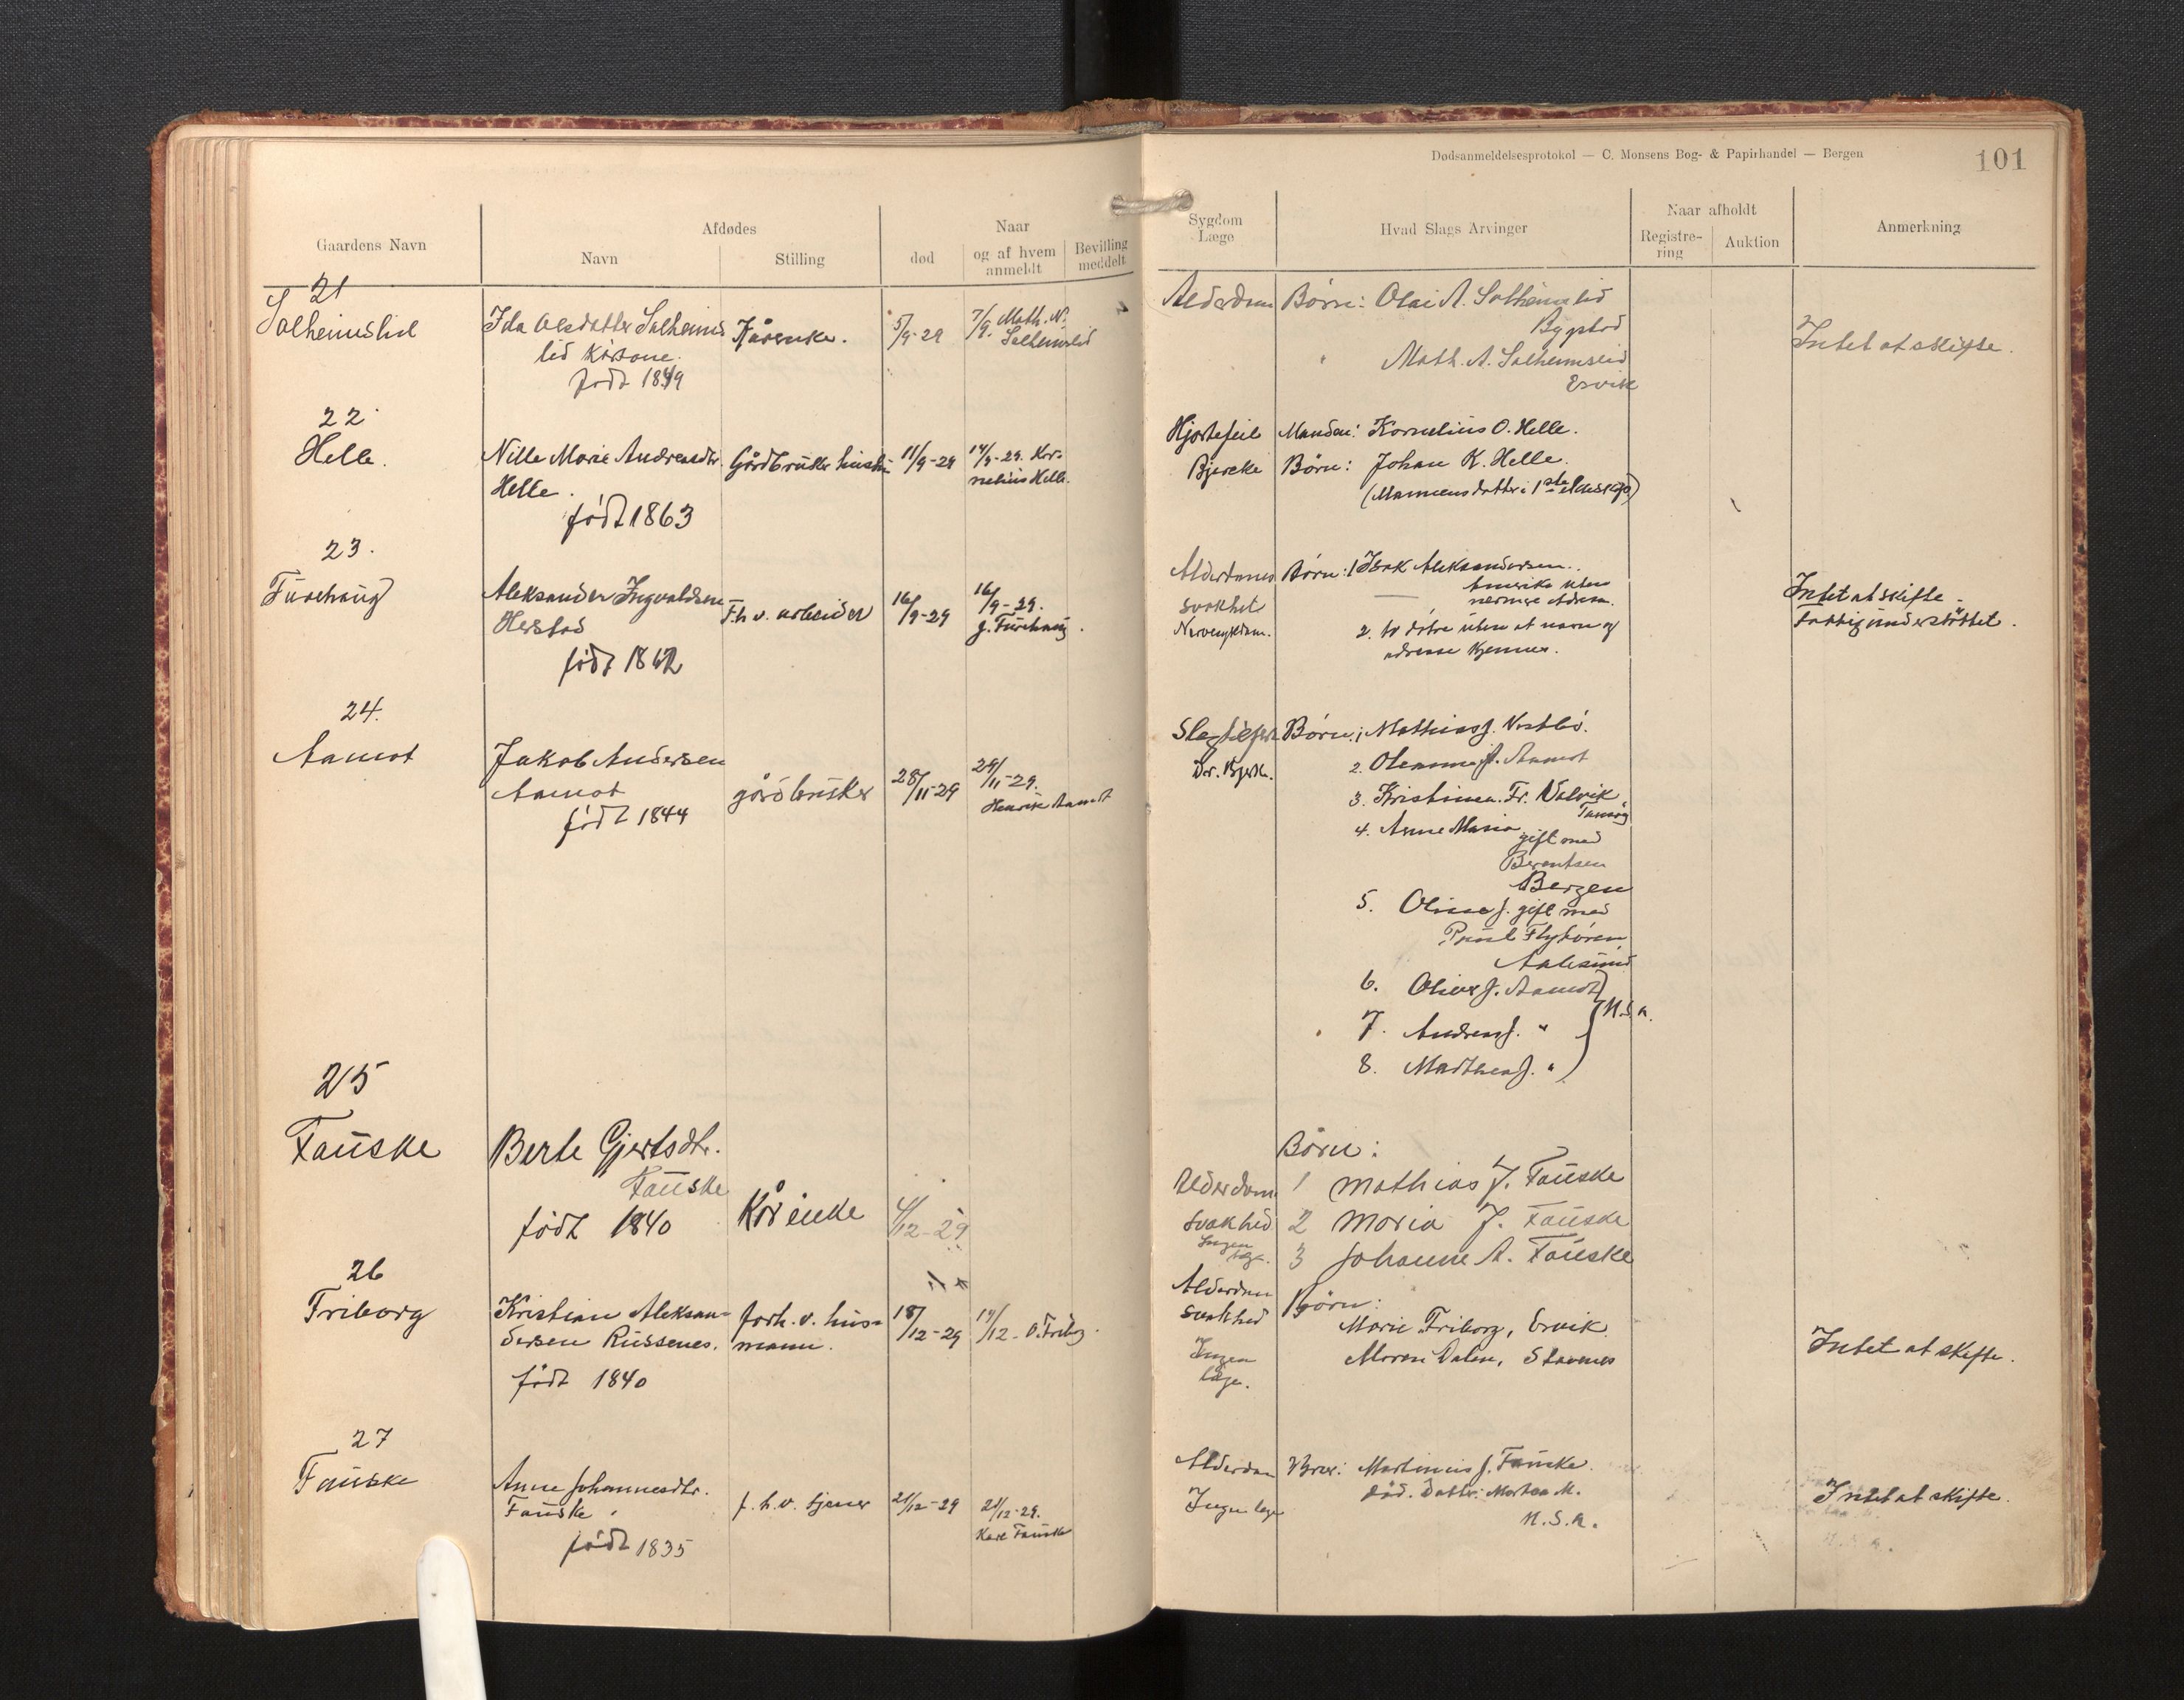 Dødsanmeldelsesprotokol — C. Monsens Bog- & Papirhandel — Bergen
101
Gaardens Navn
Afdødes
Navn
Stilling
Naar
død
og af hvem anmeldt
Bevilling meddelt
Sygdom
Læge
Hvad Slags Arvinger
Naar afholdt
Registre-
ring
Auktion
Anmerkning
21
Solheimslid
Ida Olsdatter Solheims
lid
født 1849
Kårenke.
5/9-29
7/9. Math. N.
Solheimslid
Alderdom
Børn: Olai A. Solheimslid
Bygstad
Math. A. Solheimslid
Ervik
Intet at skifte.
22
Helle.
Nille Marie Andreasdtr.
Helle.
født 1863
Gårdbruker hustru
11/9-29
14/9-29. Kor-
nelius Helle.
Hjertefeil
Bjercke
Manden: Kornelius O. Helle.
Børn: Johan K. Helle.
(Mannens datter i 1ste
23.
Furehaug
Aleksander Ingvaldsen
Herstad
født 1842
F.h.v. arbeider
16/9-29
16/9-29.
J. Furehaug.
Alderdoms
svakhet
Nervesykdom.
Børn: 1 Isak Aleksandersen.
Amerika uten
nermere Adresse.
2. to døtre uten at navn og
adresse kjennes.
Intet at skifte.
Fattigunderstøttet.
24.
Aamot
Jakob Andersen
Aamot
født 1844
gårdbruker
28/11-29
29/11-29.
Henrik Aamot
Dr. Bjerk.
Børn: Mathias J.
2. J. Aamot
3. Fr. Valvik
4. Anne Maria
gift med
Berentsen
Bergen
5. Oline J. gift med
Aalesund
6. Oliver J. Aamot
7. Andreas J. "
8. Marthea J. "
N.S.A.
25
Fauske
Berte Gjertsdtr.
Fauske
født 1840
Kårenke
4/12-29
Alderdom
svakhed
Ingen
læge.
Børn:
1 Mathias J. Fauske
2 Maria J. Fauske
3 Johanne A. Fauske
26
Friborg
Kristian Aleksan-
dersen Russenes.
født 1840
forh. v. hus-
mann.
18/12-29
19/12- O. Friborg.
Alderdom
svakhed
Ingen
læge.
Børn:
Marie Friborg, Ervik
Dalen, Stavenes
Intet at skifte.
27
Fauske
Anne Johannesdtr.
Fauske
født 1835
f.h.v. tjener
21/12-29
21/12-29.
Karl Fauske
Alderdom
Ingen læge
Bror: Martinius J. Fauske.
død. Datter: Martea M.
N.S.A.
Intet at skifte.